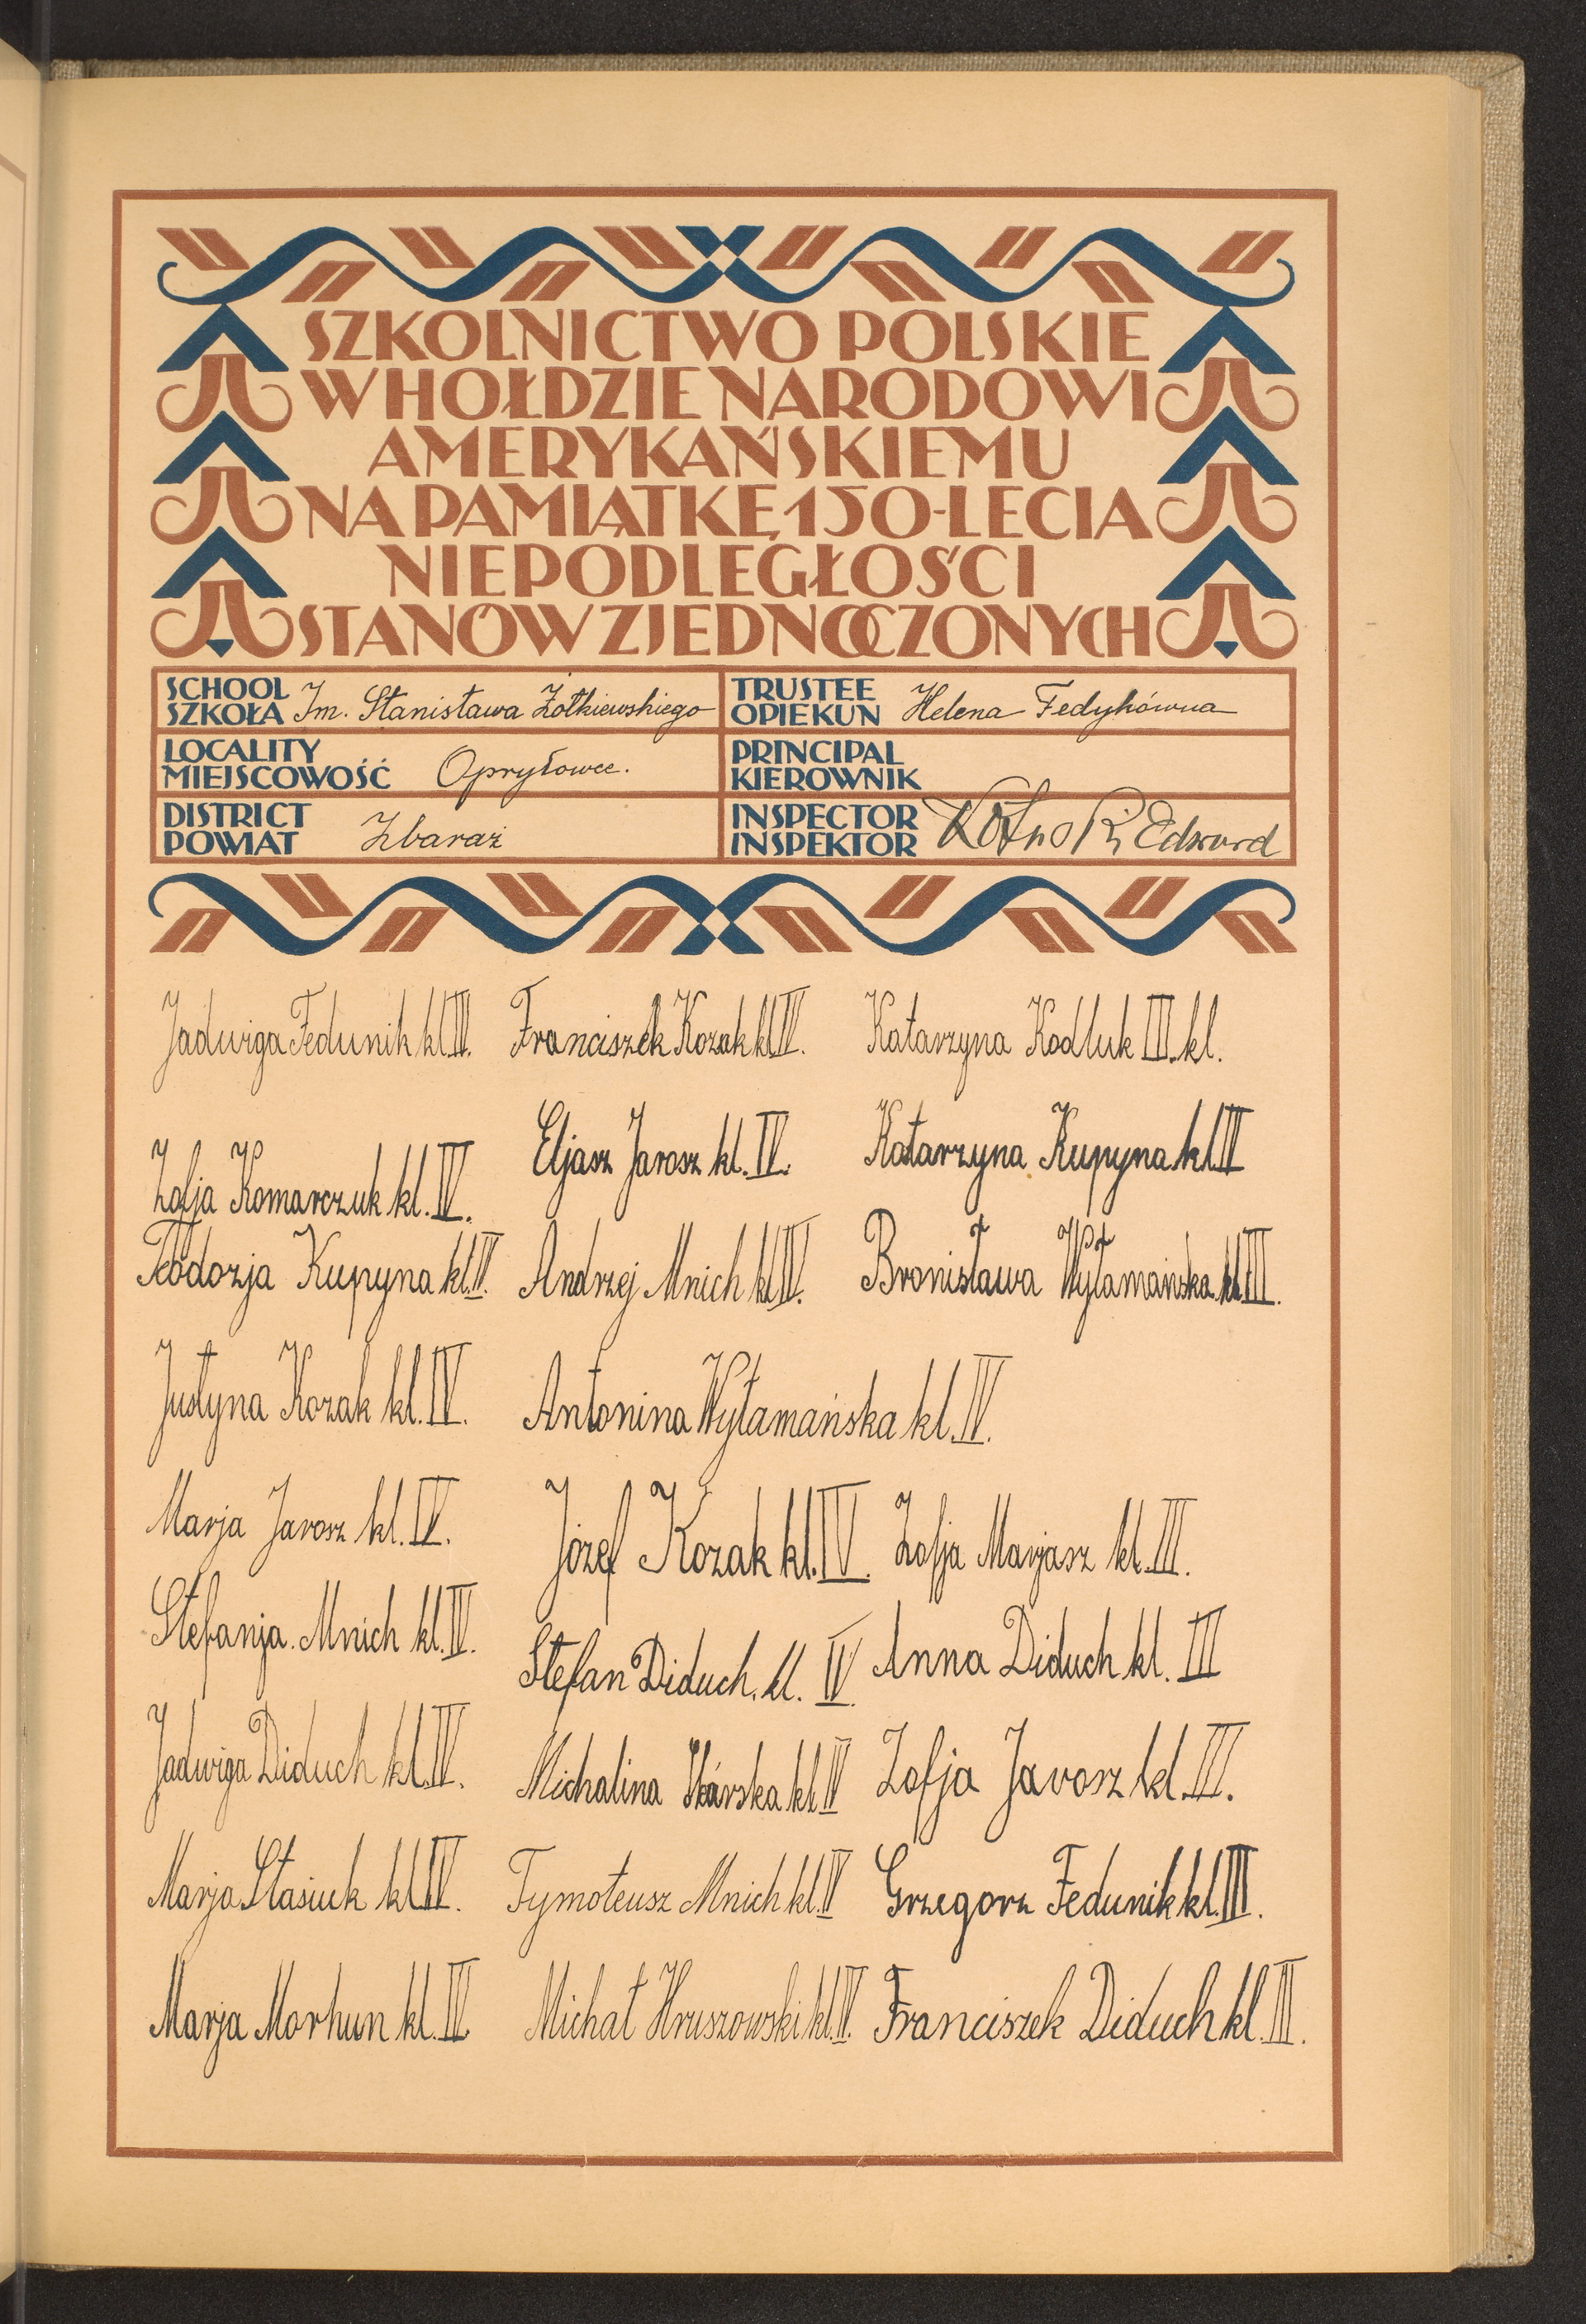 SZKOLNICTWO POLSKIE
W HOŁDZIE NARODOWI
AMERYKAŃSKIEMU
NA PAMIĄTKĘ 150-LECIA
NIEPODLEGŁOŚCI
STANÓW ZJEDNOCZONYCH
SCHOOL
SZKOŁA Im. Stanisława Żółkiewskiego
TRUSTEE
OPIEKUN Helena Fedykówna
LOCALITY
MIEJSCOWOŚĆ Opryłowce.
PRINCIPAL
KIEROWNIK
DISTRICT
POWIAT Zbaraż
INSPECTOR
INSPEKTOR Edward
Jadwiga Fedunik kl IV.
Zofja Komarczuk kl. IV.
Teodozja Kupyna kl. IV.
Justyna Kozak kl. IV.
Marja Jarosz kl. IV.
Stefanja. Mnich kl. IV.
Jadwiga Diduch kl. IV.
Marja Stasiuk kl IV.
Marja Morhun kl. IV
Franciszek Kozak kl IV.
Eljasz Jarosz kl. IV.
Andrzej Mnich kl IV.
Antonina Wyłamańska kl. IV.
Józef Kozak kl. IV.
Stefan Diduch. kl. IV.
Michalina kl IV
Tymoteusz Mnich kl. IV
Michał Hruszowski kl. IV.
Katarzyna Kodluk III. kl.
Katarzyna Kupyna kl III
Bronisława Wyłamańska kl III.
Zofja Marjasz kl. III.
Anna Diduch kl. III
Zofja Jarosz kl. III.
Grzegorz Fedunik kl. III.
Franciszek Diduch kl. III.